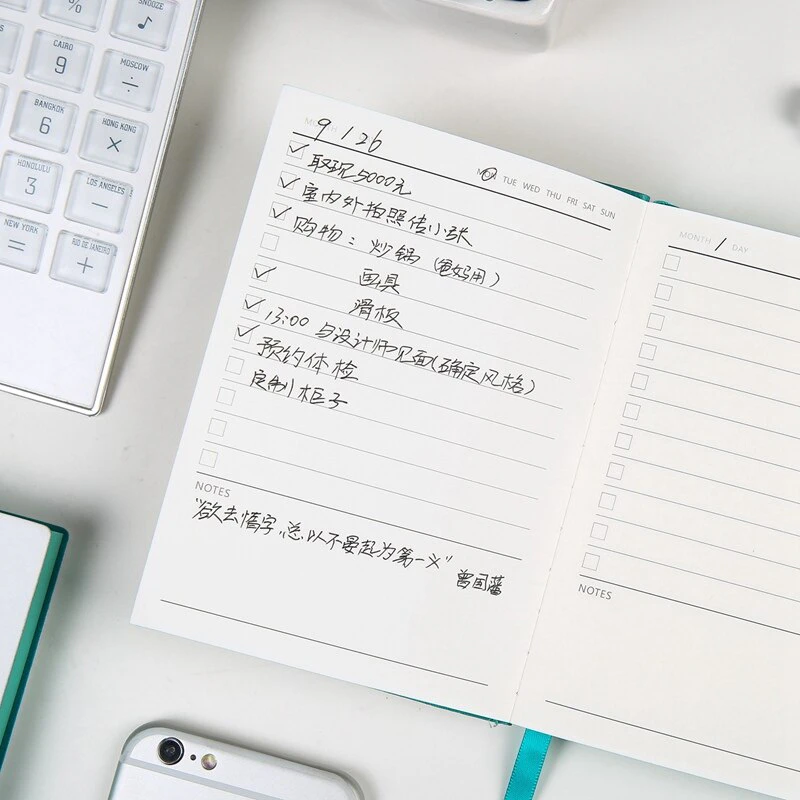 SNOOZE
%
♪
CAIRO
MOSCOW
9
÷
BANGKOK
HONG KONG
6
×
HONOLULU
LOS ANGELES
3
−
NEW YORK
RIO DE JANEIRO
=
+
9 / 26
MON TUE WED THU FRI SAT SUN
取现5000元
室内外拍照传小珠
购物：炒锅（爸妈用）
画具
滑板
13:00 与设计师见面(确定风格)
预约体检
定制柜子
NOTES
“欲去惰字,总以不晏起为第一义”
曾国藩
MONTH / DAY
NOTES